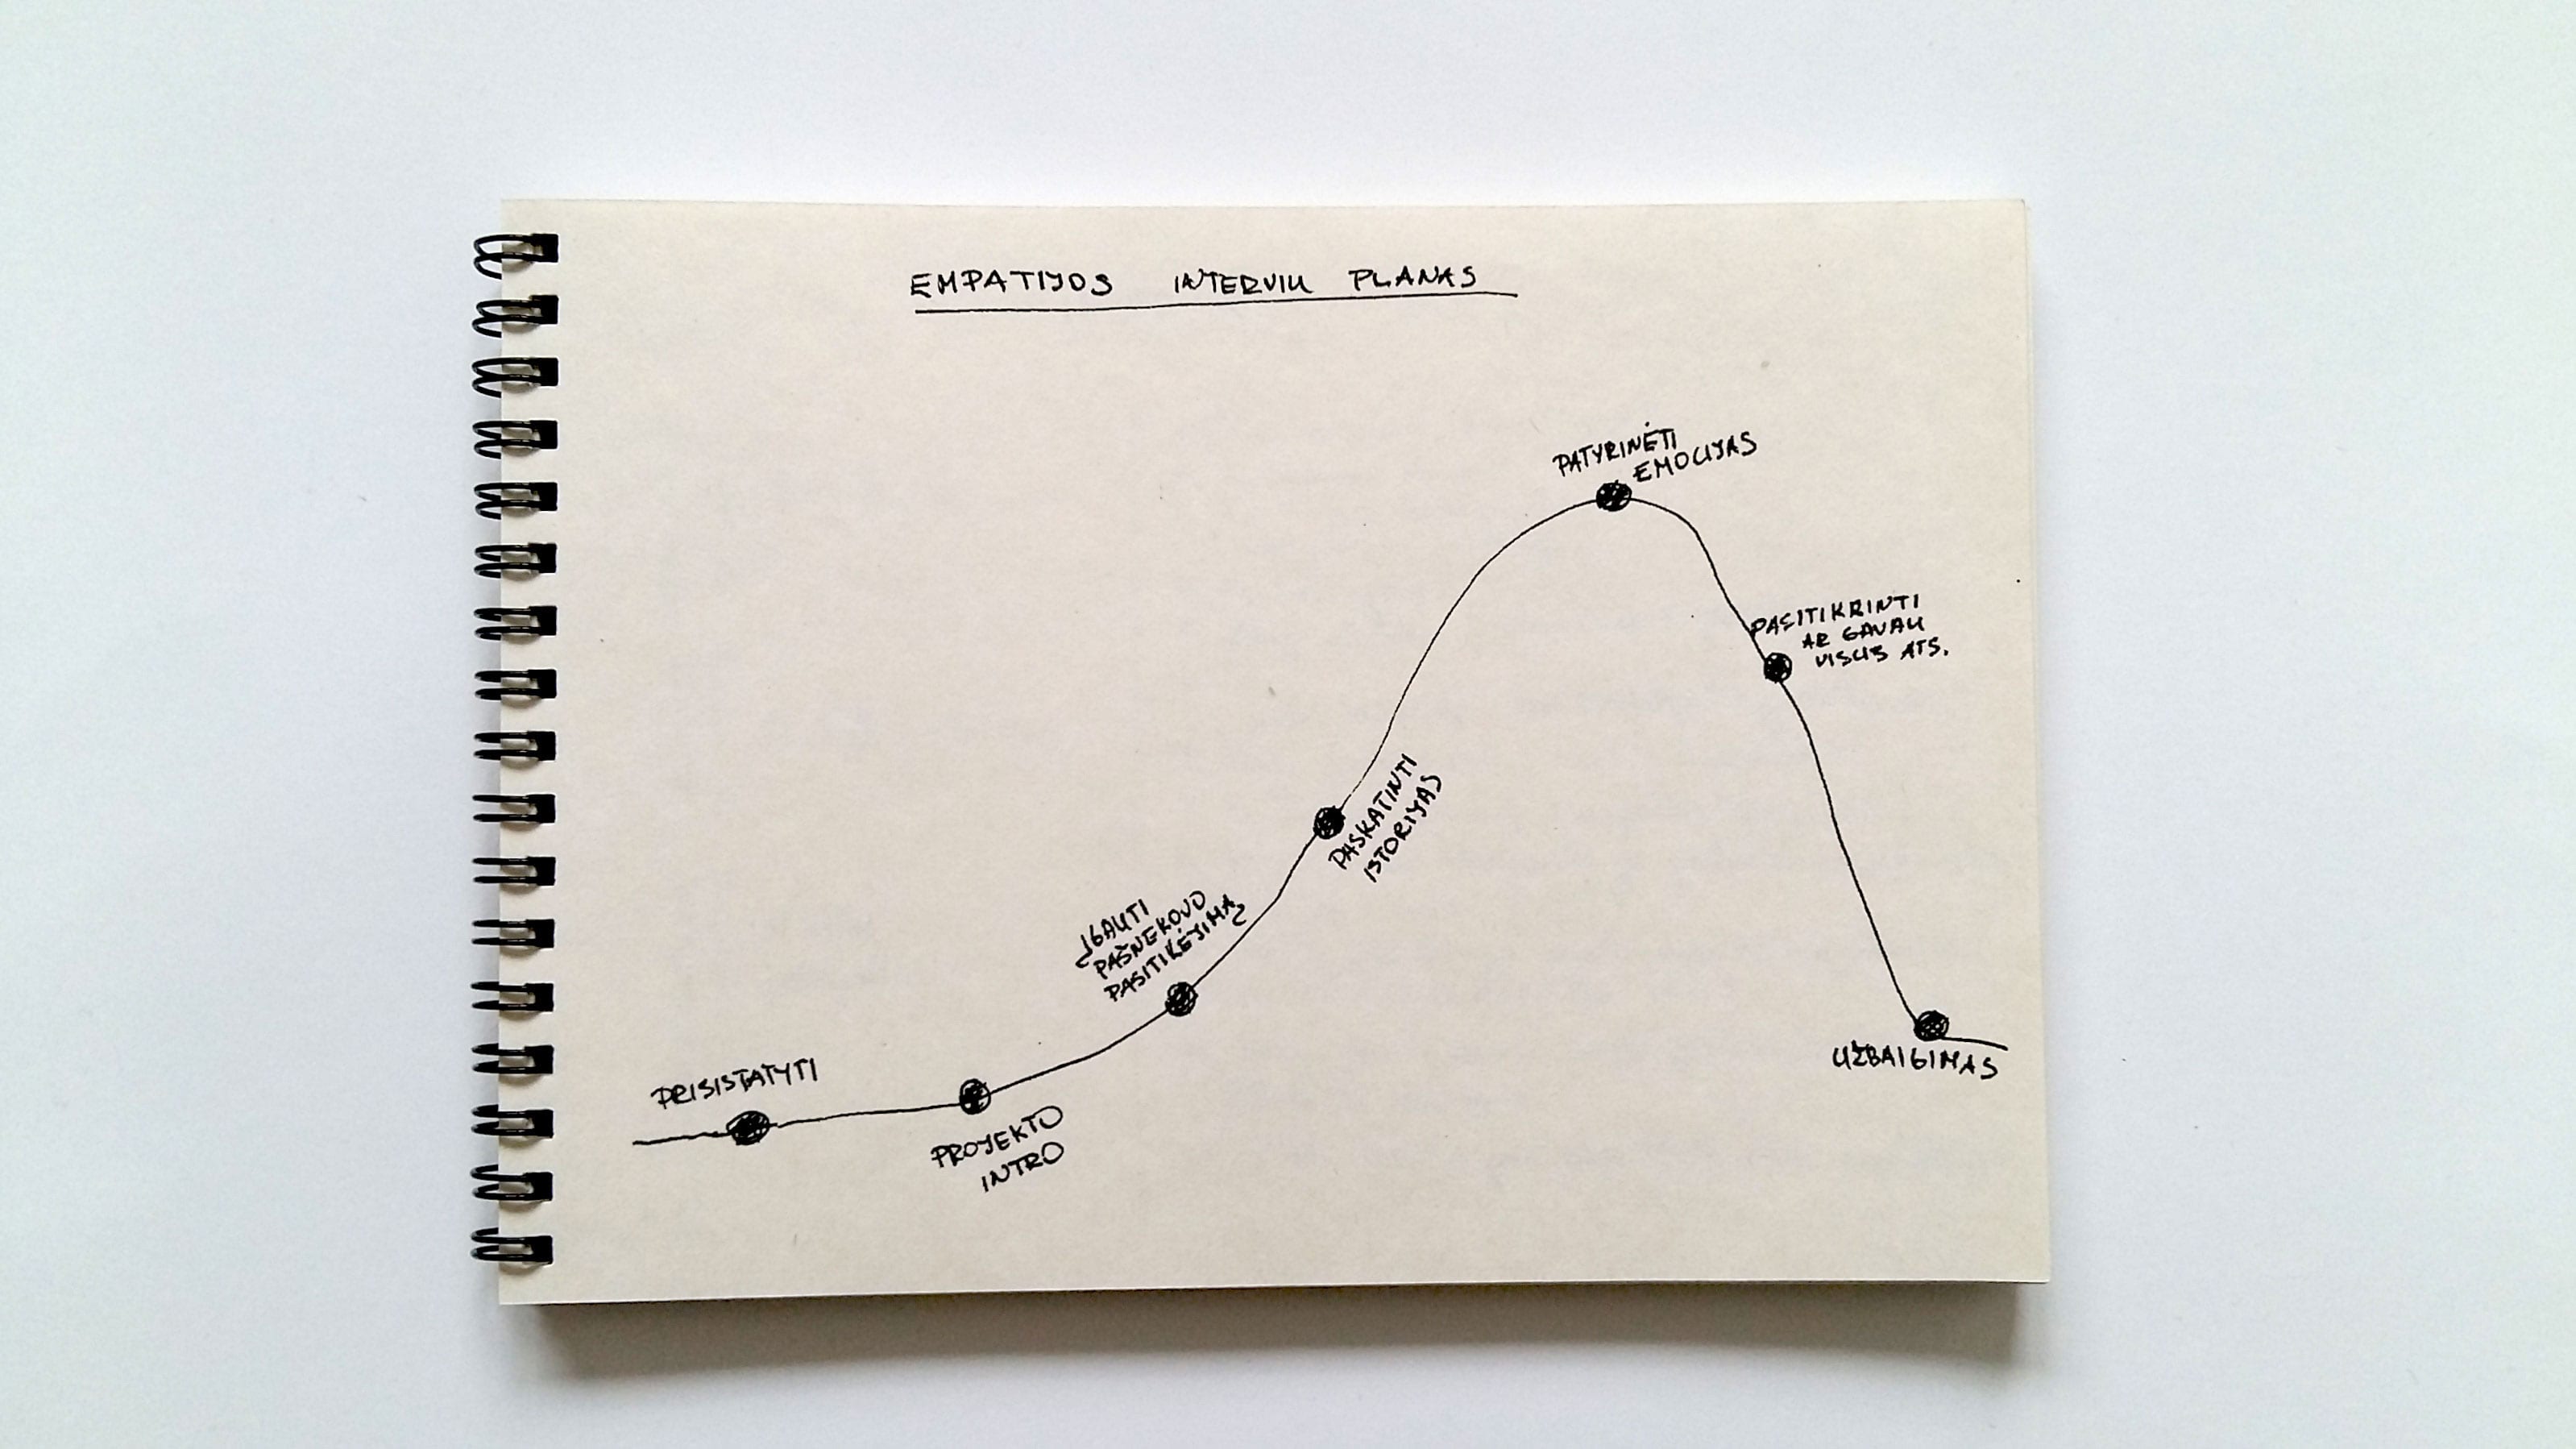 EMPATIJOS INTERVIU PLANAS
PRISISTATYTI
PROJEKTO
INTRO
ĮGAUTI
PAŠNEKOVO
PASITIKĖJIMĄ
PASKATINTI
ISTORIJAS
PATYRINĖTI
EMOCIJAS
PASITIKRINTI
AR GAVAU
VISUS ATS.
UŽBAIGIMAS